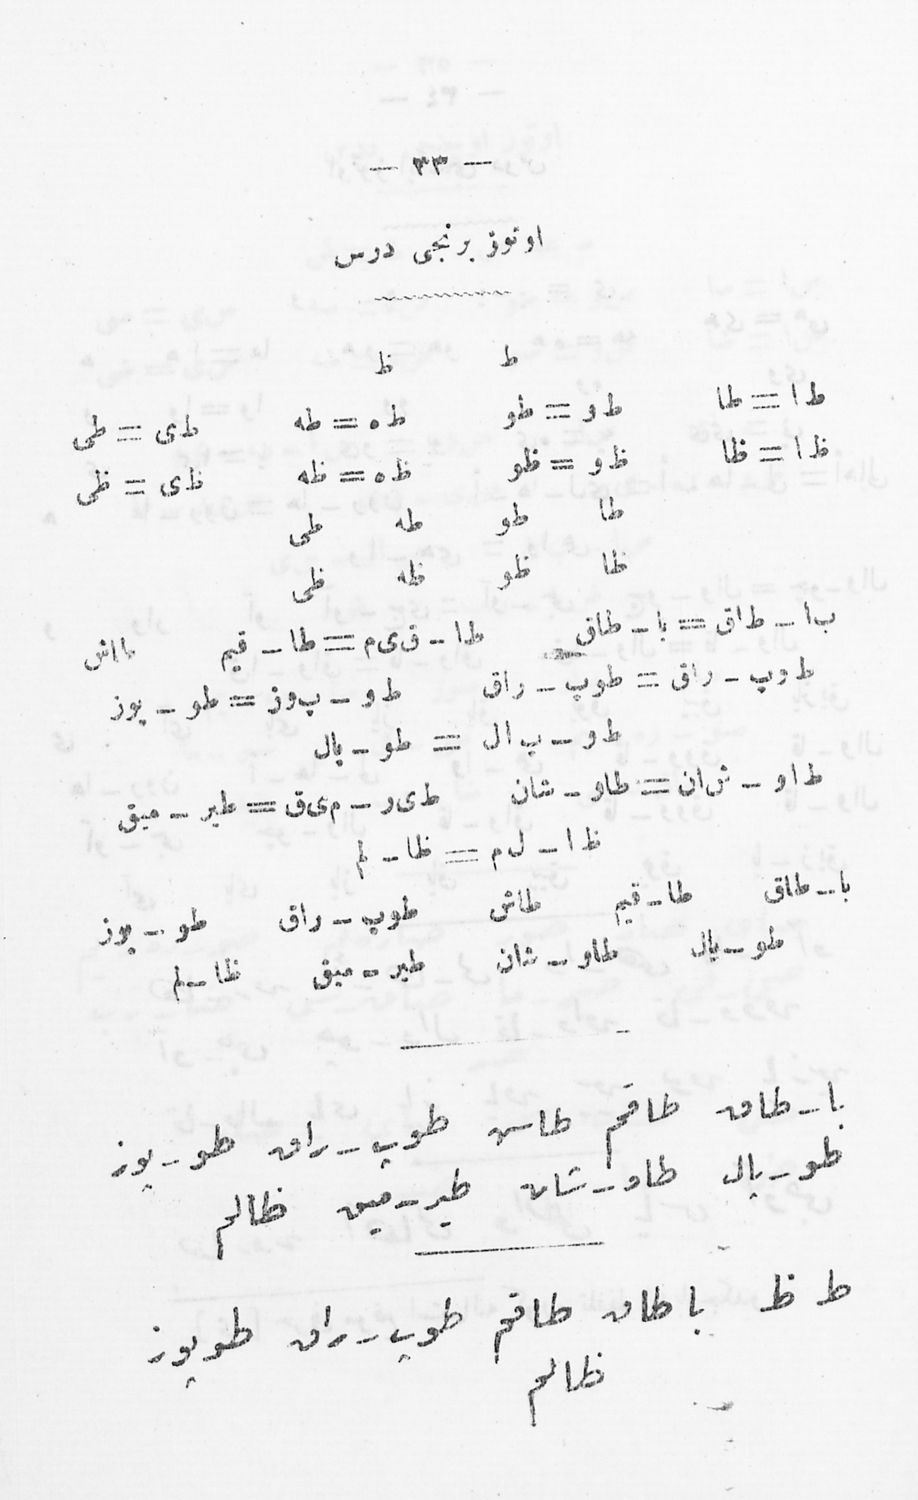 — ٣٣ —
اوتوز برنجی درس
ط ظ
ط ا = طا ط و = طو ط ه = طه ط ی = طی
ظ ا = ظا ظ و = ظو ظ ه = ظه ظ ی = ظی
طا طو طه طی
ظا ظو ظه ظی
ب ا ـ ط ا ق = با ـ طاق ط ا ـ ق ی م = طا ـ قیم
ط و پ ـ ر ا ق = طوپ ـ راق ط و ـ پ و ز = طو ـ پوز
ط و ـ پ ا ل = طو ـ پال
ط ا و ـ ش ا ن = طاو ـ شان ط ی ر ـ م ی ق = طیر ـ میق
ظ ا ـ ل م = ظا ـ لم
با ـ طاق طا ـ قیم طاش طوپ ـ راق طو ـ پوز
طو ـ پال طاو ـ شان طیر ـ میق ظا ـ لم
با ـ طاق طاقم طاس طوپ ـ راق طو ـ پوز
طو ـ پال طاو ـ شان طیر ـ میق ظالم
ط ظ باطاق طاقم طوپ ـ راق طوپوز
ظالم